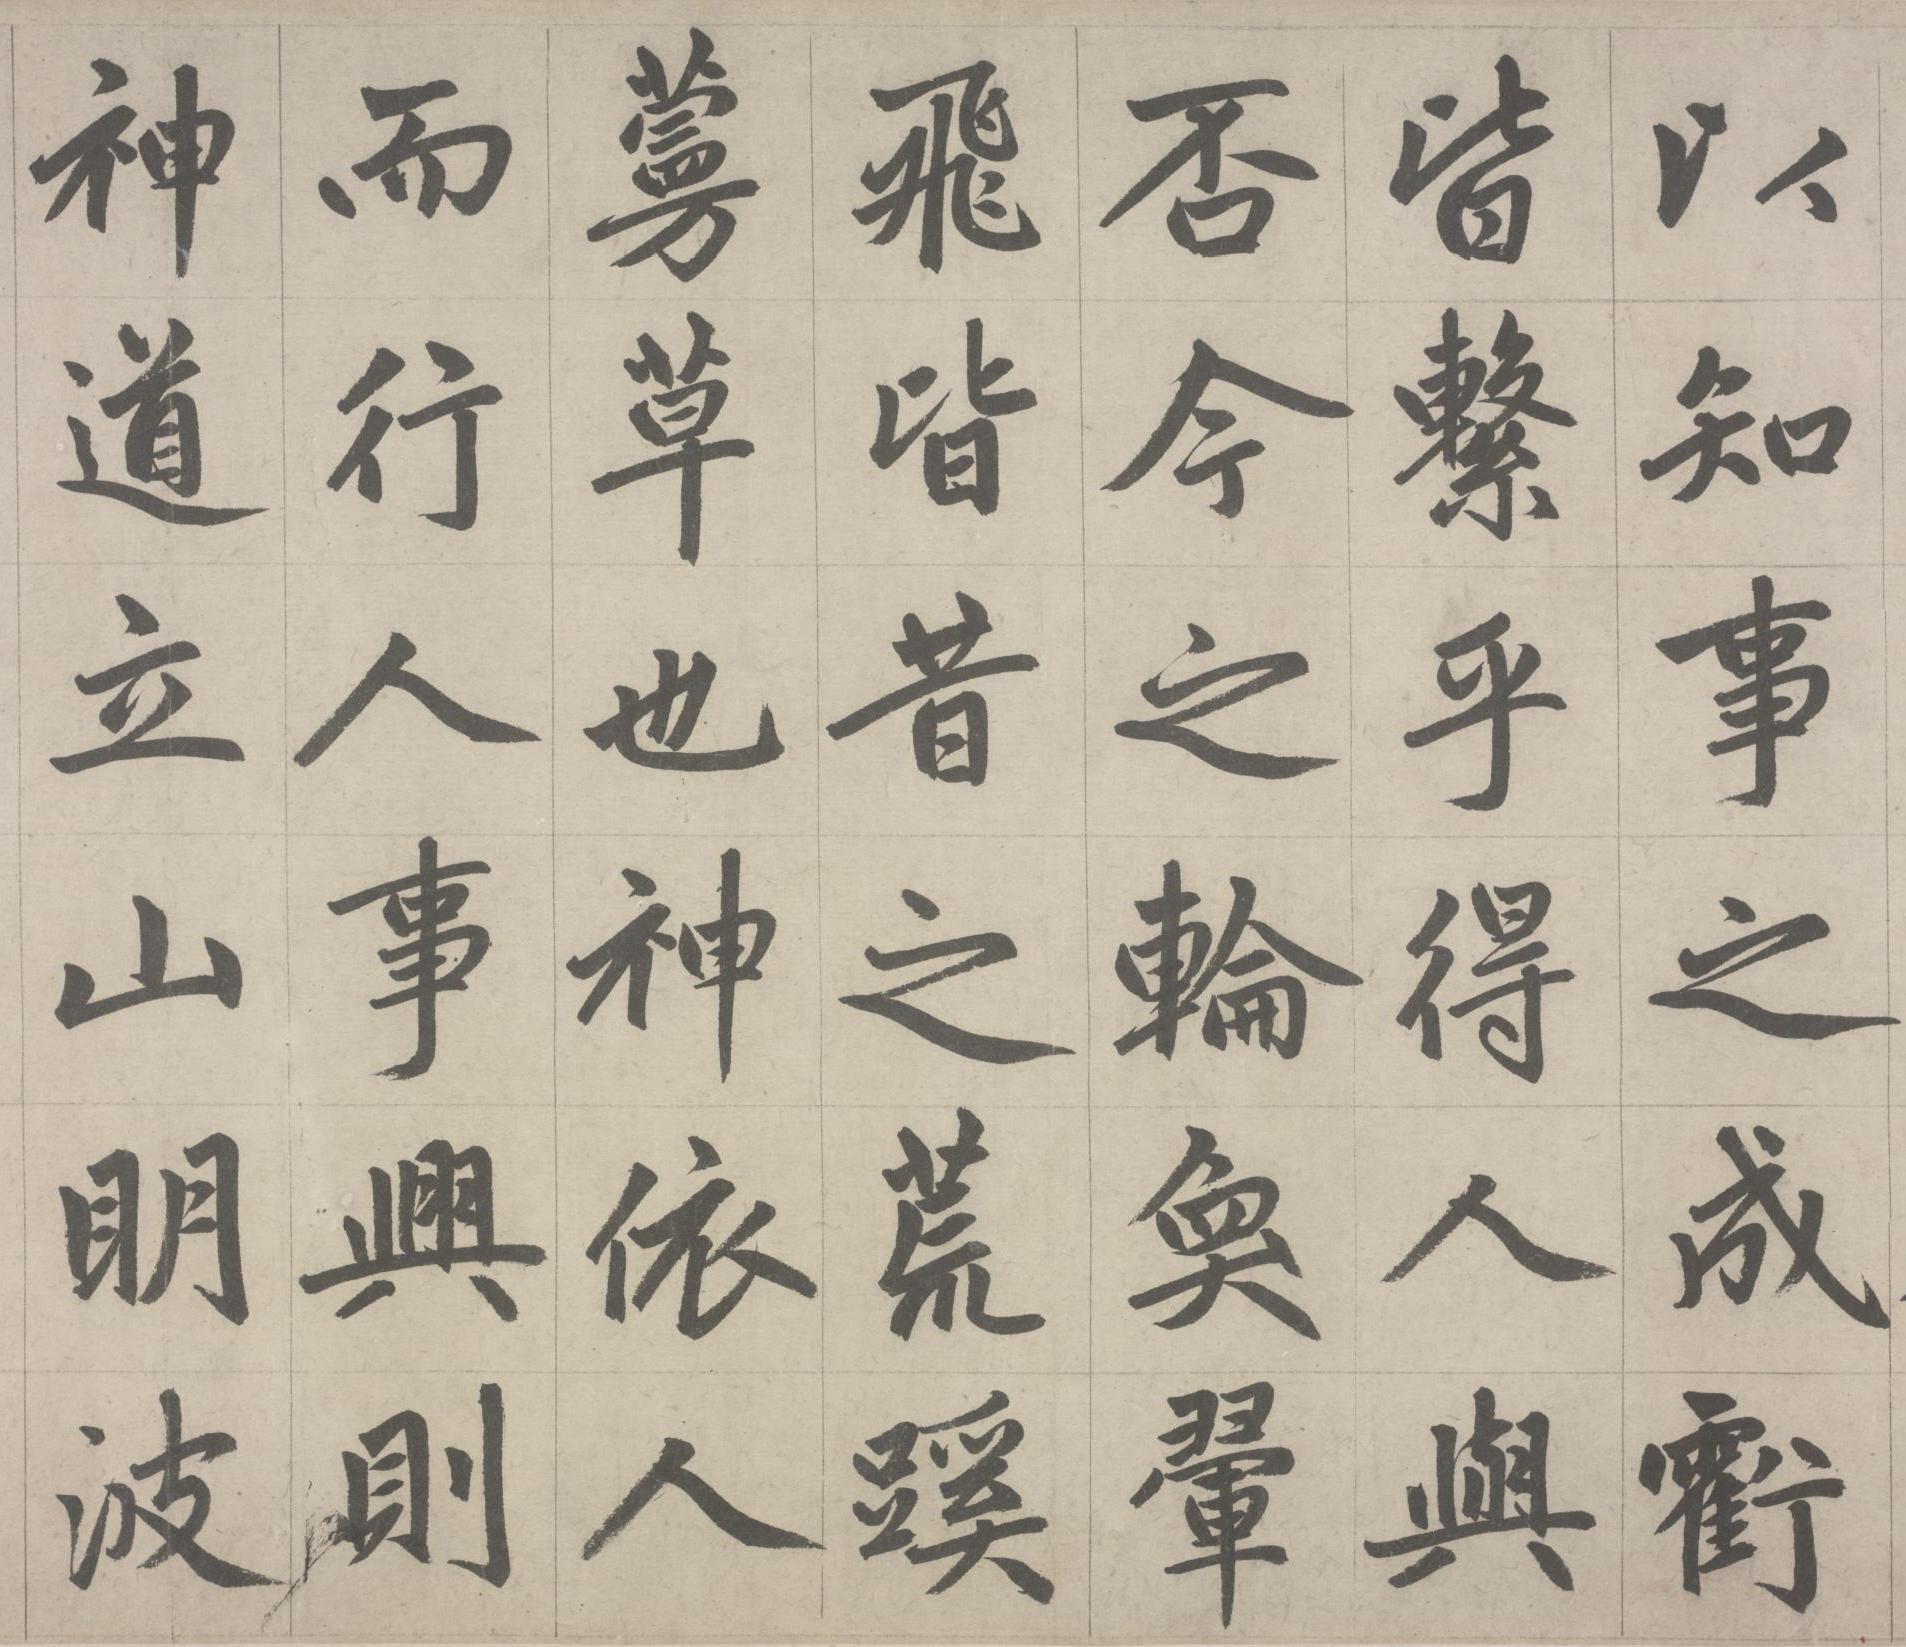 以知事之成虧
皆繫乎得人與
否今之輪奐翬
飛皆昔之荒蹊
蔓草也神依人
而行人事興則
神道立山明波